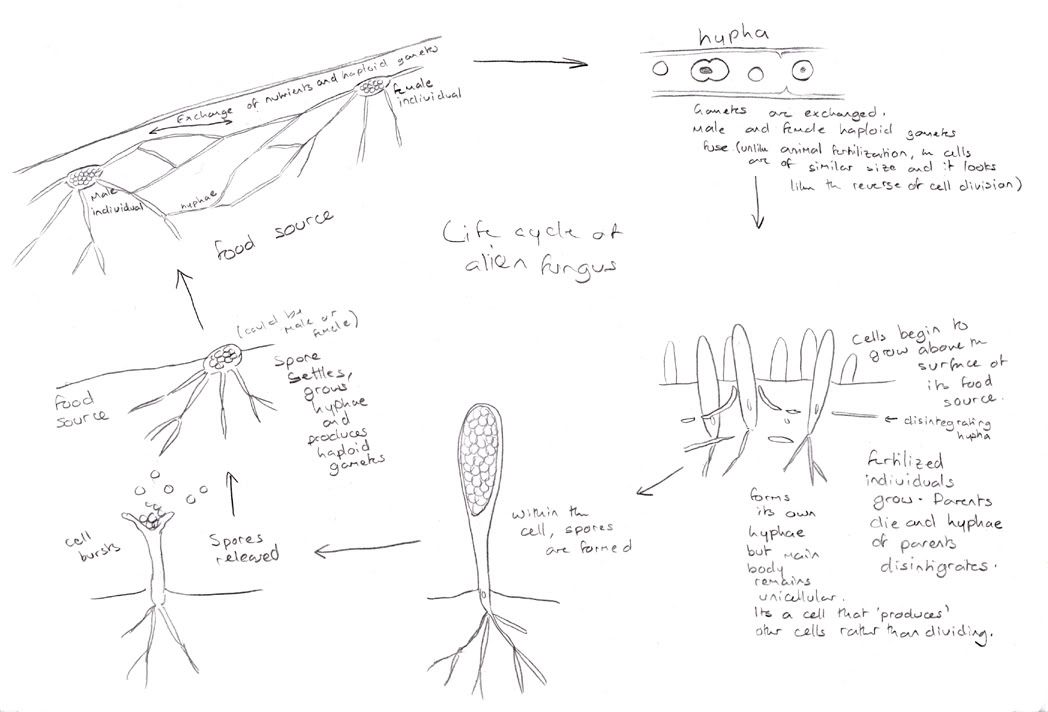 Life cycle of
alien fungus
Exchange of nutrients and haploid gametes
female
individual
Male
individual
hyphae
food source
hypha
Gametes are exchanged.
Male and female haploid gametes
fuse (unlike animal fertilization, the cells
are of similar size and it looks
like the reverse of cell division)
Cells begin to
grow above the
surface of
its food
source.
← disintegrating
hypha
fertilized
individuals
grow. Parents
die and hyphae
of parents
disintigrates.
forms
its own
hyphae
but main
body
remains
unicellular.
Its a cell that 'produces'
other cells rather than dividing.
within the
cell, spores
are formed
cell
bursts
Spores
released
(could be
male or
female)
Spore
settles,
grows
hyphae
and
produces
haploid
gametes
food
source